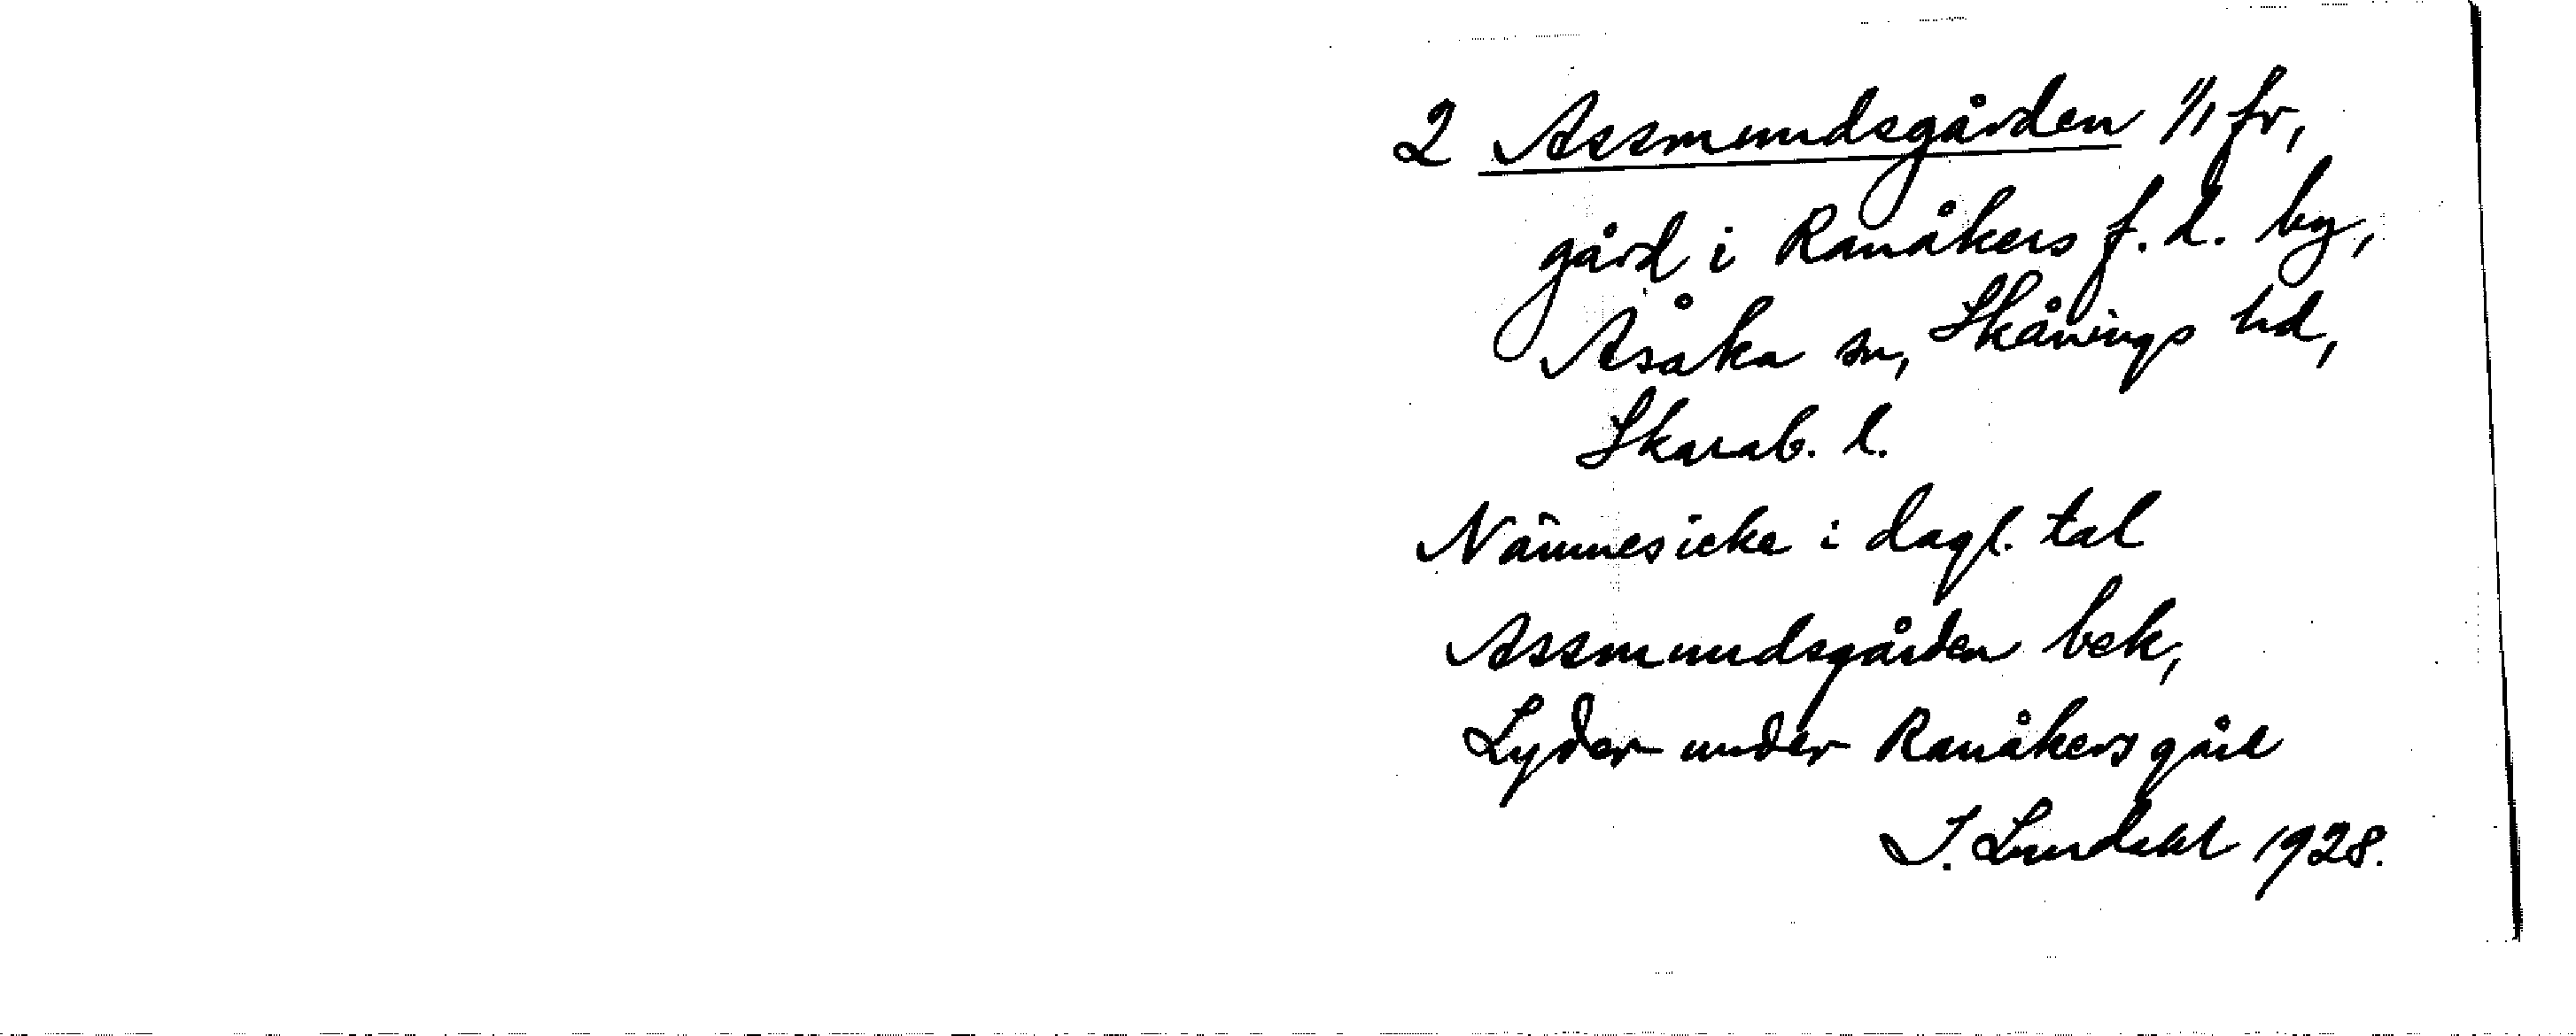 2 Assmundsgården 1/1 fr,
gård i Ranåkers f.d. by,
Åsaka sn, Skånings hd,
Skarab. l.
Nämnes icke i dagl. tal
Assmundsgården bek,
Lyder under Ranåkers gård
I. Lundahl 1928.